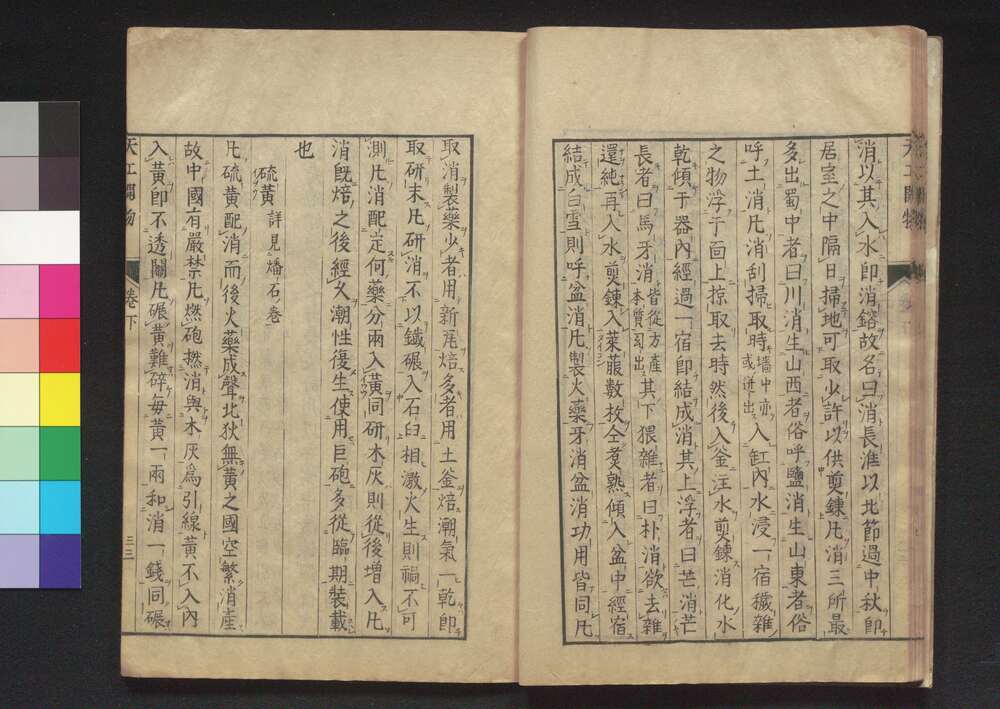 消以其入水即消鎔故名曰消長淮以北節過中秋即
居室之中隔日掃地可取少許以供煎鍊凡消三所最
多出蜀中者曰川消生山西者俗呼鹽消生山東者俗
呼土消凡消刮掃取時墻中亦或迸出入缸內水浸一宿穢雜
之物浮于面上掠取去時然後入釜注水煎鍊消化水
乾傾于器內經過一宿即結成消其上浮者曰芒消芒
長者曰馬牙消皆從方產本質幻出其下猥雜者曰朴消欲去雜
還純再入水煎鍊入萊菔數枚仝煑熟傾入盆中經宿
結成白雪則呼盆消凡製火藥牙消盆消功用皆同凡
取消製藥少者用新瓦焙多者用土釜焙潮氣一乾即
取研末凡研消不以鐵碾入石臼相激火生則禍不可
測凡消配定何藥分兩入黃同研木灰則從後增入凡
消既焙之後經久潮性復生使用巨砲多從臨期裝載
也
硫黃 詳見燔石卷
凡硫黃配消而後火藥成聲北狄無黃之國空繁消產
故中國有嚴禁凡燃砲撚消與木灰爲引線黃不入內
入黃即不透關凡碾黃難碎每黃一兩和消一錢同碾
天工開物
卷下
三三